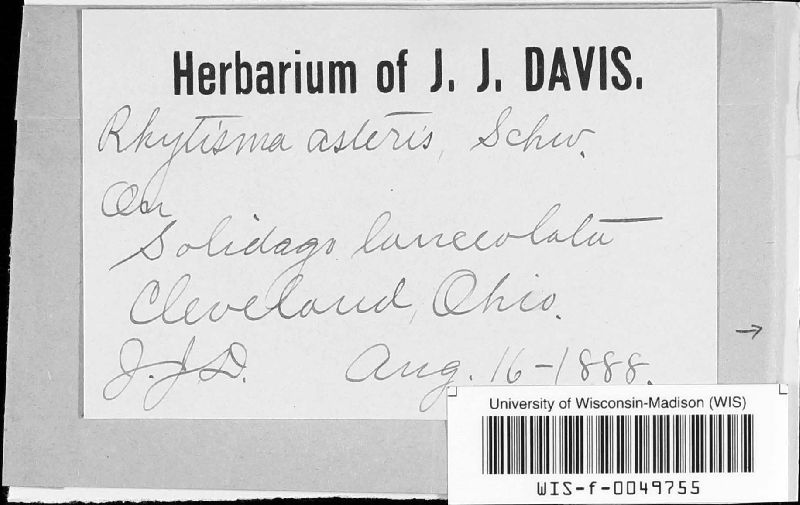 Herbarium of J. J. DAVIS.
Rhytisma asteris, Schw.
On
Solidago lanceolata
Cleveland, Ohio.
J.J.D. Aug. 16-1888.
University of Wisconsin-Madison (WIS)
WIS-f-0049755